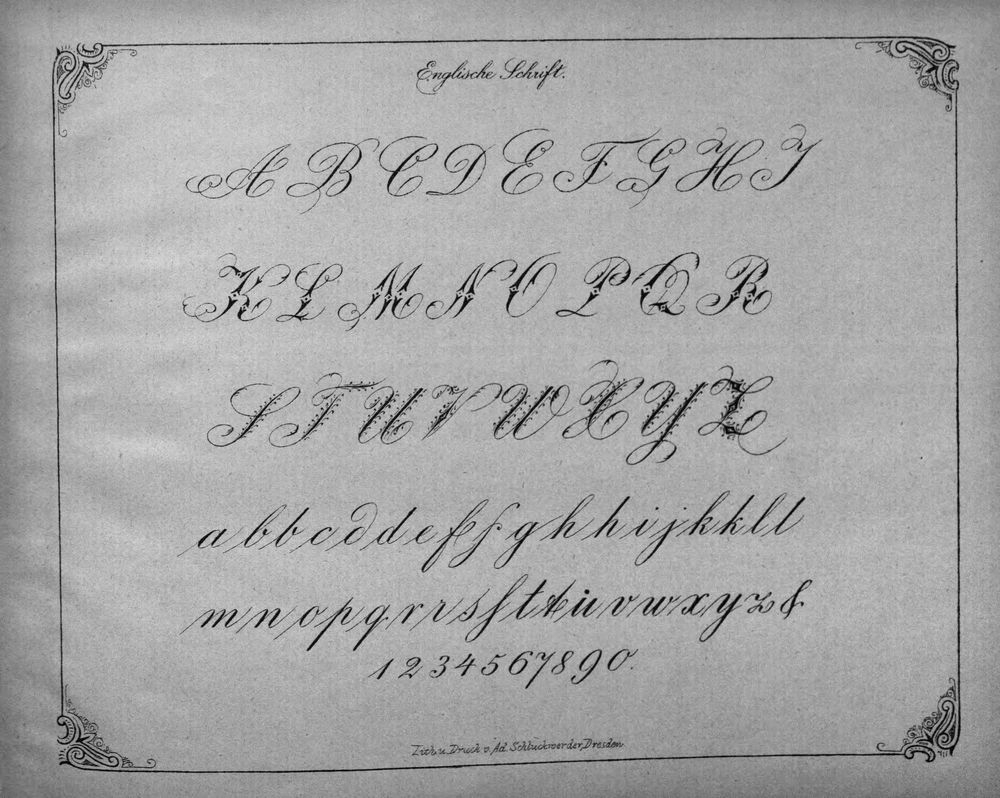 Englische Schrift.
A B C D E F G H I
K L M N O P Q R
S T U V W X Y Z
a b b c d d e f f g h h i j k k l t
m n o p q r r s ſ t t u v w x y z &
1 2 3 4 5 6 7 8 9 0.
Lith. u. Druck v. Ad. Schluckwerder, Dresden